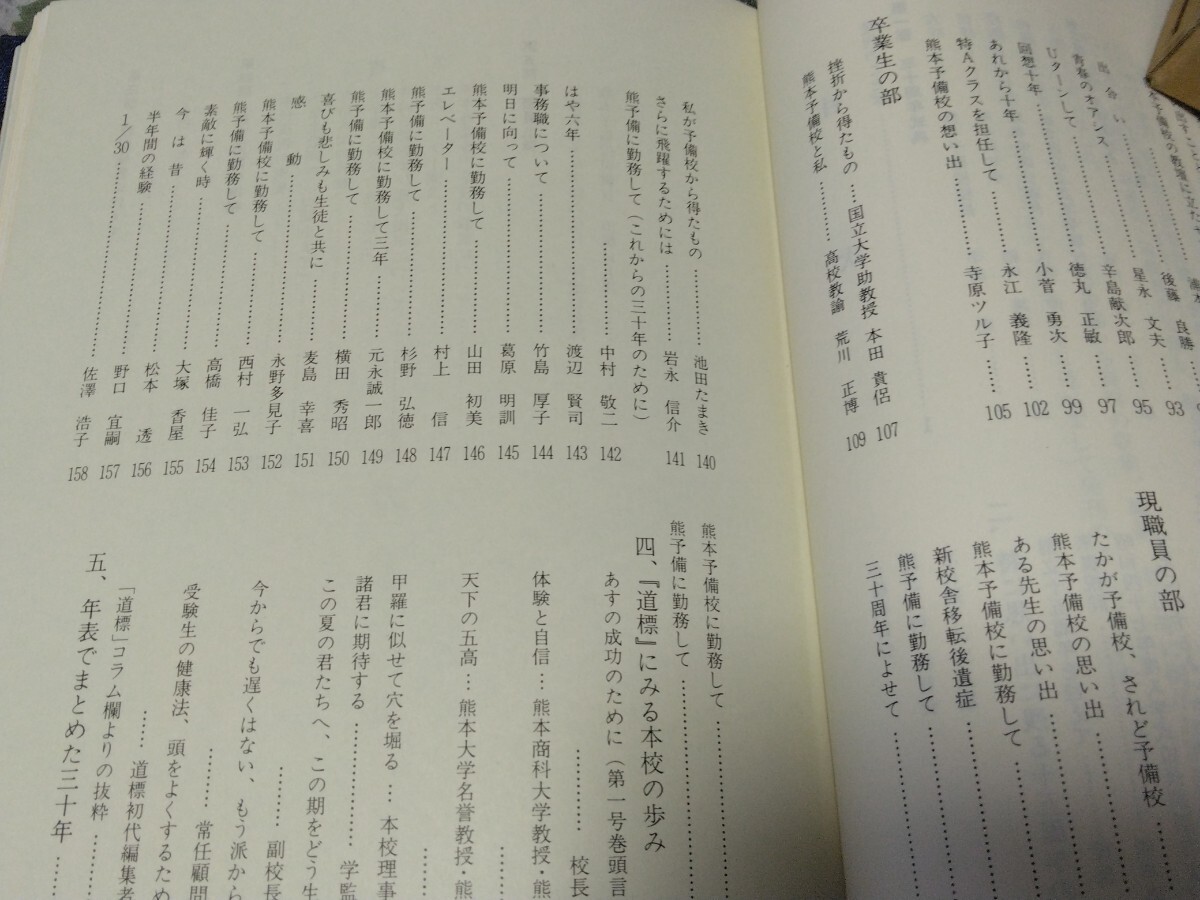 出会い……………星永 文夫 95
青春のオアシス……………辛島献次郎 97
Uターンして……………徳丸 正敏 99
回想十年……………小菅 勇次 102
あれから十年……………永江 義隆
特Aクラスを担任して
熊本予備校の想い出……………寺原ツル子……105
卒業生の部
挫折から得たもの……国立大学助教授 本田 貴侶 107
熊本予備校と私……………高校教諭 荒川 正博 109
現職員の部
たかが予備校、されど予備校
熊本予備校の思い出
ある先生の思い出
熊本予備校に勤務して
新校舎移転後遺症
熊予備に勤務して
三十周年によせて
私が予備校から得たもの……………池田たまき 140
さらに飛躍するためには……………岩永 信介 141
熊予備に勤務して(これからの三十年のために)
……………中村 敬二 142
はや六年……………渡辺 賢司 143
事務職について……………竹島 厚子 144
明日に向って……………葛原 明訓 145
熊本予備校に勤務して……………山田 初美 146
エレベーター……………村上 信 147
熊予備に勤務して……………杉野 弘徳 148
熊本予備校に勤務して三年……………元永誠一郎 149
熊予備に勤務して……………横田 秀昭 150
喜びも悲しみも生徒と共に……………麦島 幸喜 151
感動……………永野多見子 152
熊本予備校に勤務して……………西村 一弘 153
熊予備に勤務して……………高橋 佳子 154
素敵に輝く時……………大塚 香屋 155
今は昔……………松本 透 156
半年間の経験……………野口 宜嗣 157
1/30……………佐澤 浩子 158
熊本予備校に勤務して
熊予備に勤務して
四、『道標』にみる本校の歩み
あすの成功のために(第一号巻頭言
……………校長
体験と自信…熊本商科大学教授・熊
天下の五高…熊本大学名誉教授・熊
甲羅に似せて穴を掘る…本校理事
諸君に期待する……………学監
この夏の君たちへ、この期をどう生
……………副校長
今からでも遅くはない、もう派から
受験生の健康法、頭をよくするため
……………常任顧問
「道標」コラム欄よりの抜粋
……道標初代編集者
五、年表でまとめた三十年